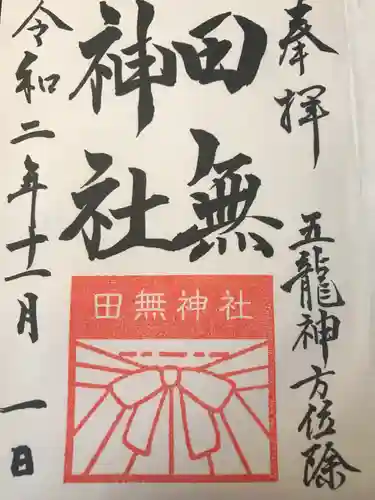 奉拝
五龍神方位除
田無
神社
田無神社
令和二年十一月一日